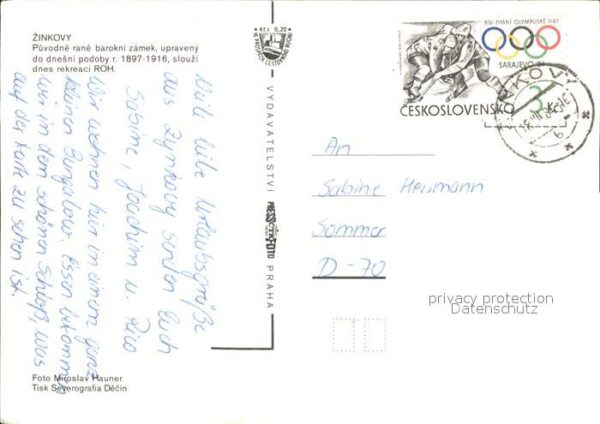 ŽINKOVY
Původně raně barokní zámek, upravený
do dnešní podoby r. 1897-1916, slouží
dnes rekreaci ROH.
Kčs 0,20
Viele liebe Urlaubsgrüße
aus Zinkovy senden Euch
Sabine, Joachim u. Rico
Wir wohnen hier in einem ganz
Bungalow. Essen bekommen
wir in dem schönen Schloß was
auf der Karte zu sehen ist.
Foto Miroslav Hauner
Tisk Severografia Děčín
VYDAVATELSTVÍ
PRAHA
XIV. ZIMNÍ OLYMPIJSKÉ HRY
SARAJEVO/84
ČESKOSLOVENSKO
3
An
Sabine Hermann
Sommer
D-70
privacy protection
Datenschutz